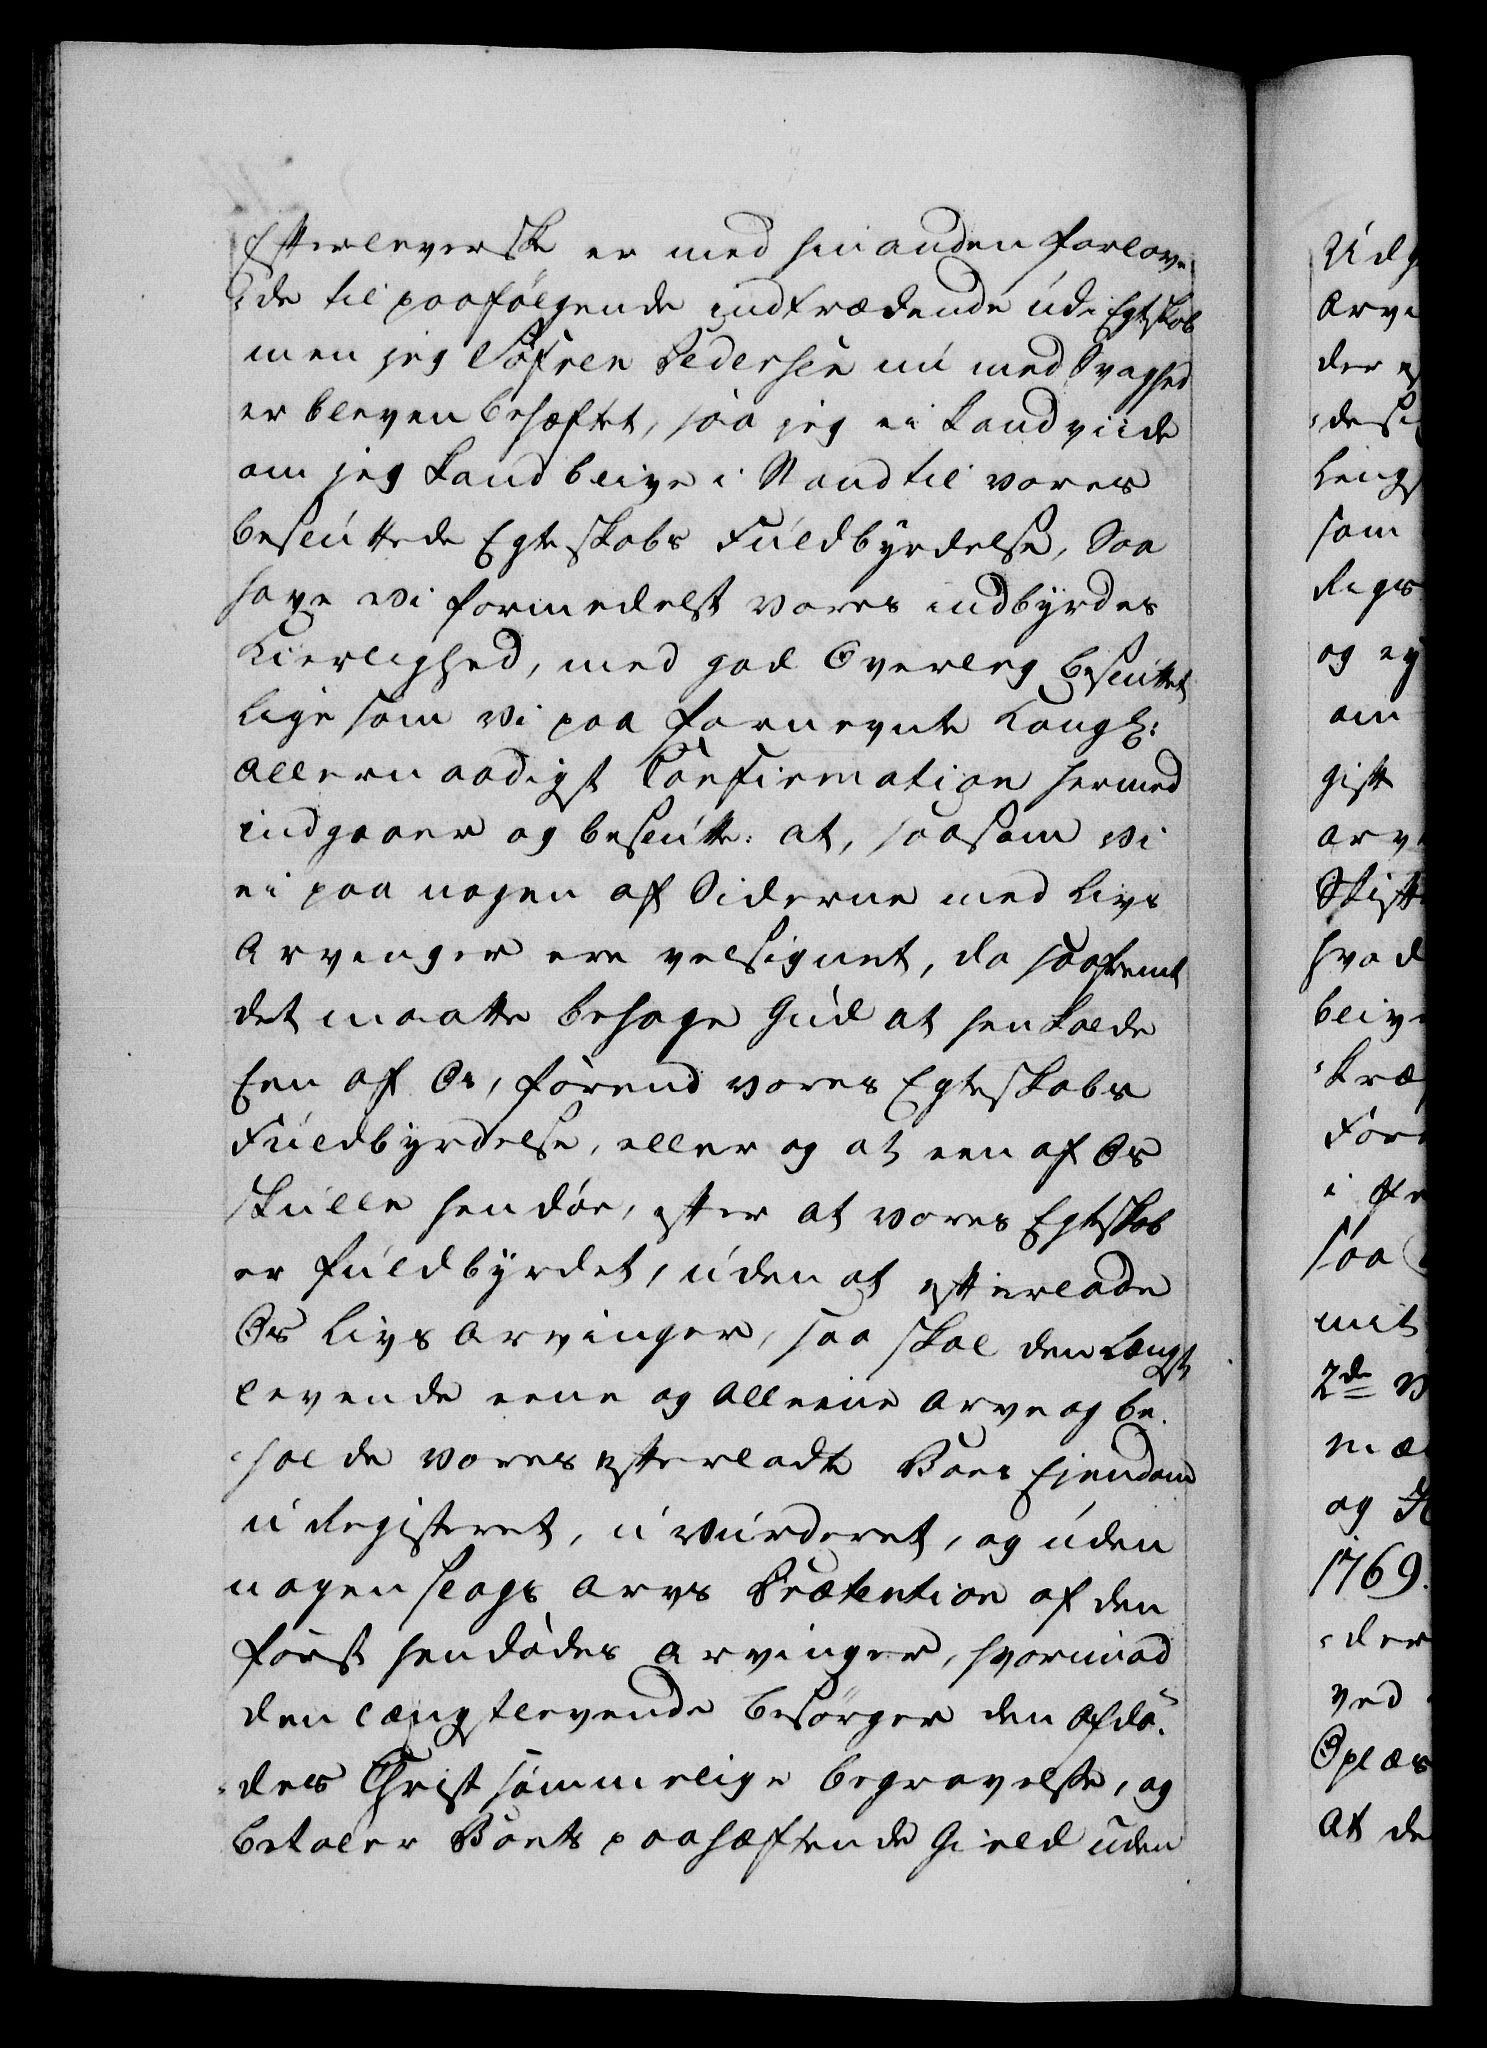 Efterleverske er med hinanden forlove¬
¬de til paafølgende indtrædende udi Egteskab
men jeg Søfren Pedersen nu med Svaghed
er bleven behæftet, saa jeg ei kand viide
om jeg kand blive i Stand til vores
besluttede Egteskabs Fuldbyrdelse, Saa
have vi formedelst vores indbyrdes
Kierlighed, med god Overleg besluttet
lige som vi paa fornevnte Kongl:
allernaadigst Confirmation hermed
indgaaer og beslutte: at, saasom vi
ei paa nogen af Siderne med Livs
Arvinger ere velsignet, da saafremt
det maatte behage Gud at henkalde
Een af Os, førend vores Egteskabs
Fuldbyrdelse, eller og at een af Os
skulle hendøe, efter at vores Egteskab
er fuldbyrdet, uden at efterlade
Os Livs Arvinger, saa skal den Længst
levende eene og alleene arve og be¬
¬holde vores efterladte Boes Ejendom
u registeret, u vurderet, og uden
nogen slags Arvs Prætention af den
først hendødes Arvinger, hvorimod
den længstlevende besørger den afdø¬
¬des Christ sømmelige begravelse, og
betaler Boets paahæftende Gield uden
Udg
Arve
der
¬desi
Lengs
som
Regs
og ey
om
gift
arve
Skift
hvad
blive
¬kræ
For
i
saa
mit
2de
mæ
og
1769.
¬der
ved
Oplæs
At de